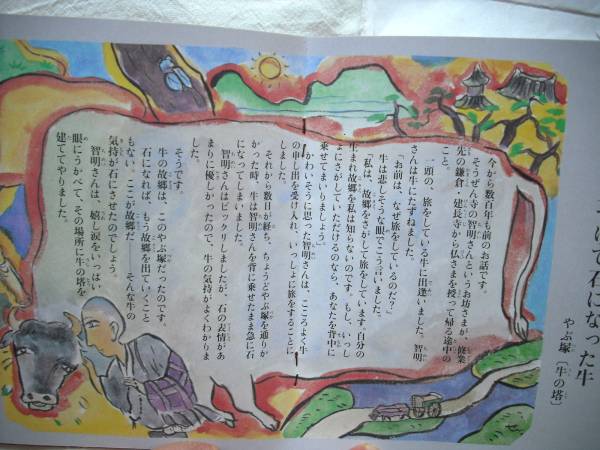 げて石になった牛
やぶ塚「牛の塔」
今から数百年も前のお話です。
そうぜん寺の智明さんというお坊さまが、修業
先の鎌倉・建長寺から仏さまを授って帰る途中の
こと。
一頭の、旅をしている牛に出逢いました。智明
さんは牛にたずねました。
「お前は、なぜ旅をしているのだ?」
牛は悲しそうな眼でこう言いました。
「私は、故郷をさがしに旅をしています。自分の
生まれ故郷を私は知らないのです。もし、いっし
ょにさがしていただけるのなら、あなたを背中に
乗せてまいりましょう」
かわいそうに思った智明さんは、こころよく牛
の申し出を受け入れ、いっしょに旅をすることに
しました。
それから数日が経ち、ちょうどやぶ塚を通りか
かった時、牛は智明さんを背に乗せたまま急に石
になってしまいました。
智明さんはビックリしましたが、石の表情があ
まりに優しかったので、牛の気持がよくわかりま
した。
そうです。
牛の故郷は、このやぶ塚だったのです。
石になれば、もう故郷を出ていくこと
もない。ここが故郷だ　そんな牛の
気持が石にさせたのでしょう。
智明さんは、嬉し涙をいっぱい
眼にうかべて、その場所に牛の塔を
建ててやりました。